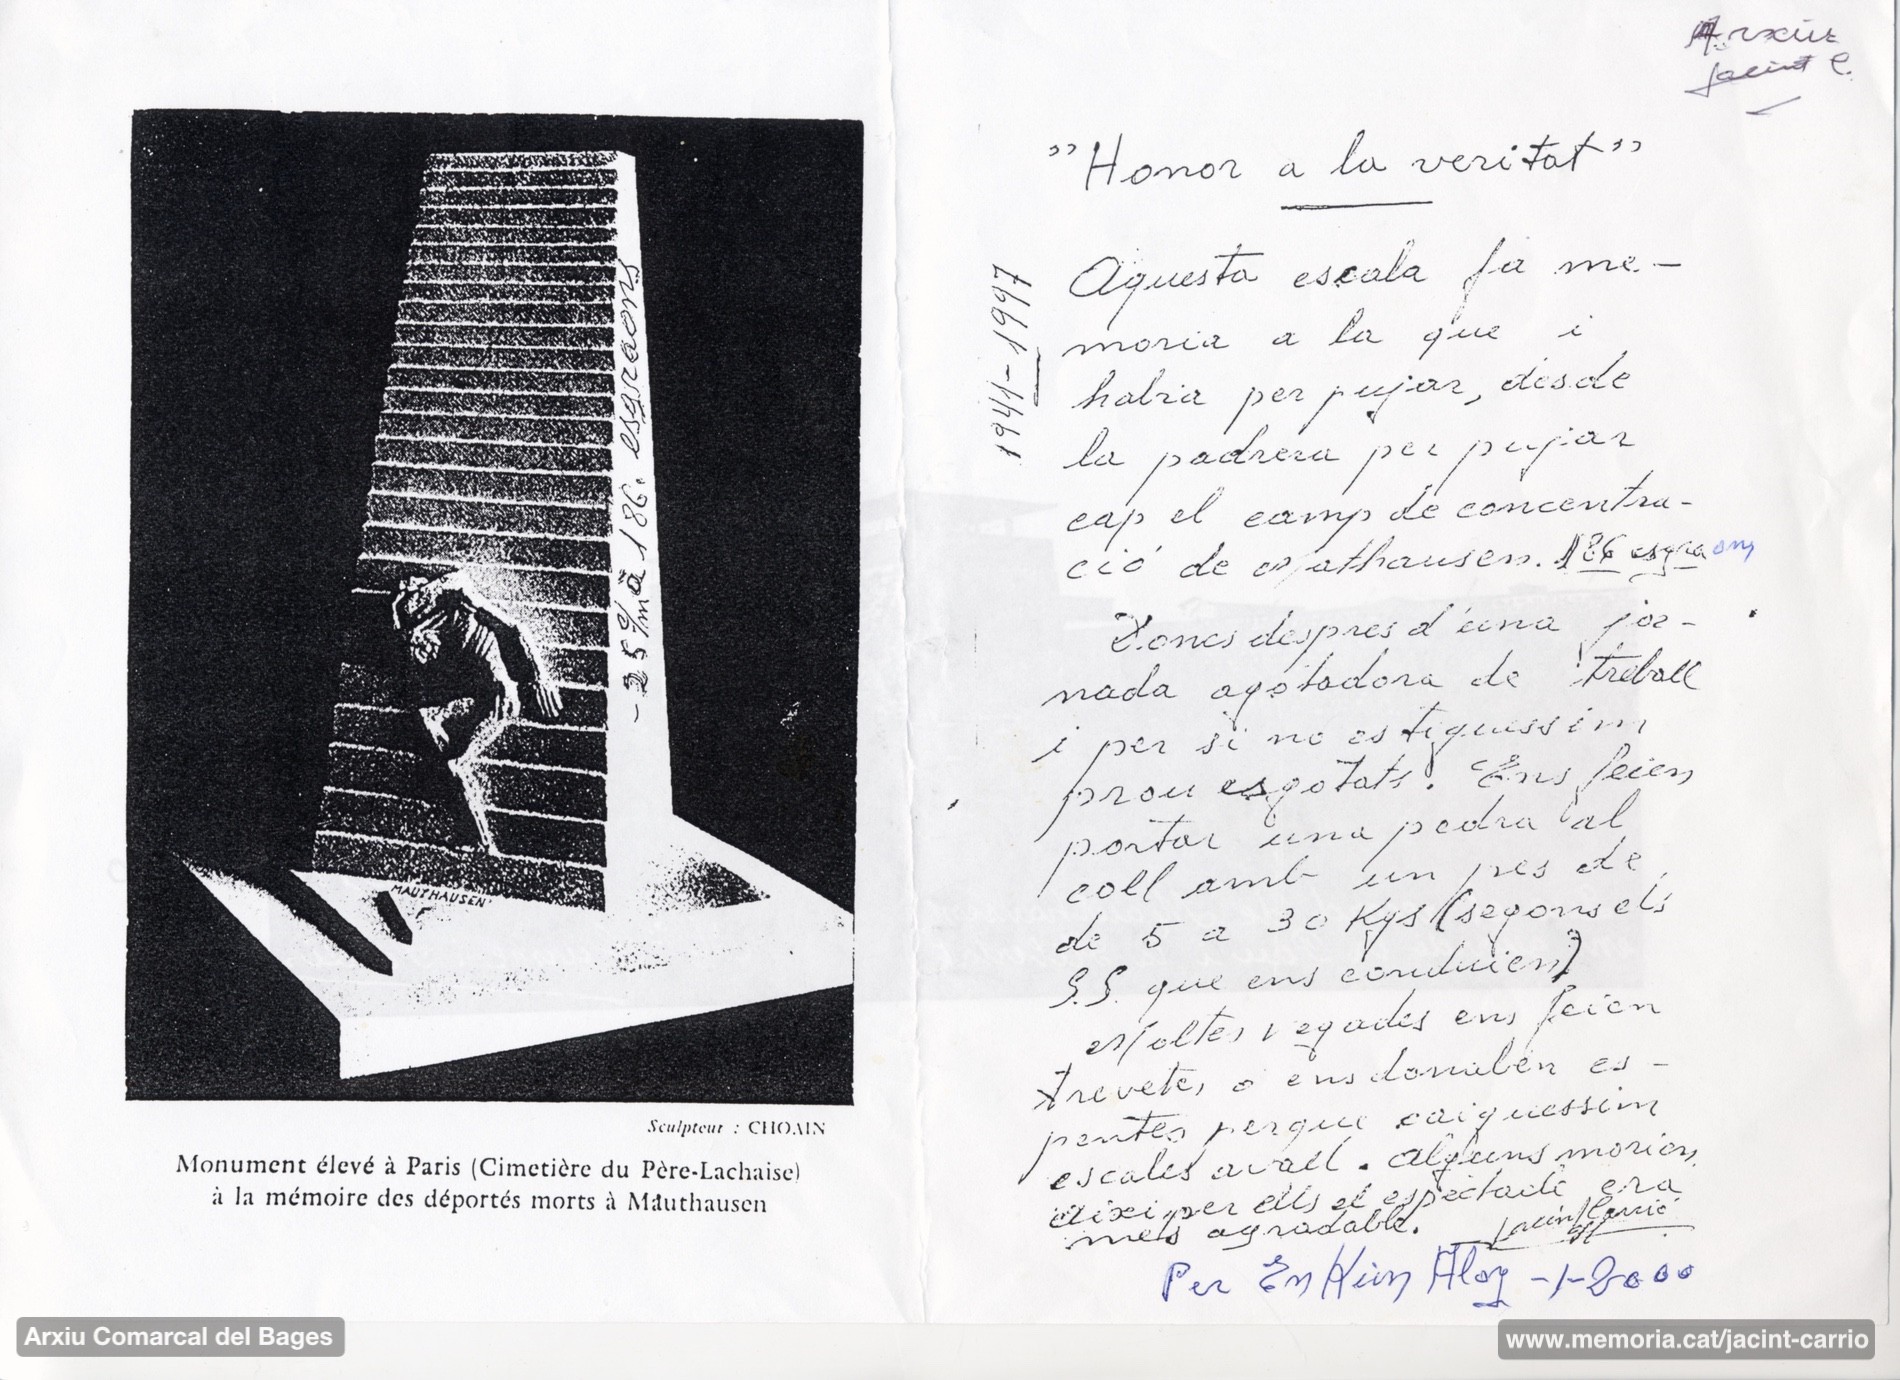 - 25 c/m à 186. esgraons
MAUTHAUSEN
Sculpteur : CHOAIN
Monument élevé à Paris (Cimetière du Père-Lachaise)
à la mémoire des déportés morts à Mauthausen
Arxiu
Jacint C.
"Honor a la veritat"
1941-1997
Aquesta escala fa me-
moria a la que i
habia per pujar, desde
la padrera per pujar
cap el camp de concentra-
ció de Mathausen. 186 esgraons
Xoncs despres d'una jor-
nada agotadora de treball
i per si no estiguessim
prou esgotats. Ens feien
portar una pedra al
coll amb un pes de
de 5 a 30 Kgs (segons els
S.S. que ens conduien)
Moltes vegades ens feien
trevetes o ens donaben es-
pentes perque caiguessim
escales avall. Alguns morien
aixi per ells el espectacle era
mes agradable. Jacint Carrió
Per En Kim Aloy -1-2000
Arxiu Comarcal del Bages
www.memoria.cat/jacint-carrio